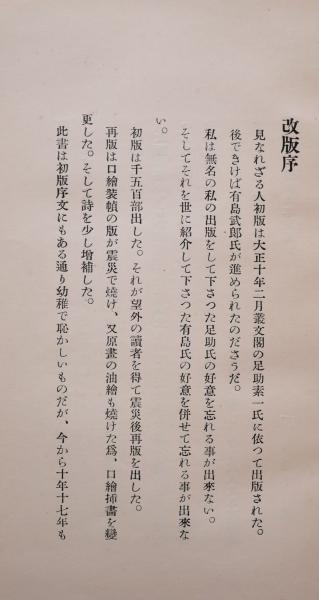 改版序
見なれざる人初版は大正十年二月叢文閣の足助素一氏に依つて出版された。
後できけば有島武郎氏が進められたのださうだ。
私は無名の私の出版をして下さつた足助氏の好意を忘れる事が出來ない。
そしてそれを世に紹介して下さつた有島氏の好意を併せて忘れる事が出來な
い。
初版は千五百部出した。それが望外の讀者を得て震災後再版を出した。
再版は口繪装幀の版が震災で燒け、又原畫の油繪も燒けた爲、口繪挿畫を變
更した。そして詩を少し增補した。
此書は初版序文にもある通り幼稚で恥かしいものだが、今から十年十七年も